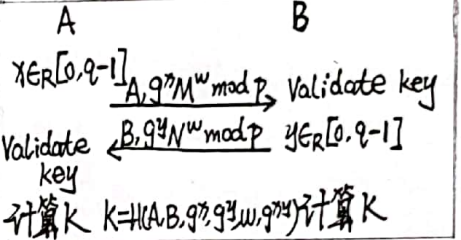 A B
x∈R[0,q-1]
A,g^x M^w mod p Validate key
Validate key B,g^y N^w mod p y∈R[0,q-1]
计算K K=H(A,B,g^x,g^y,w,g^xy) 计算K